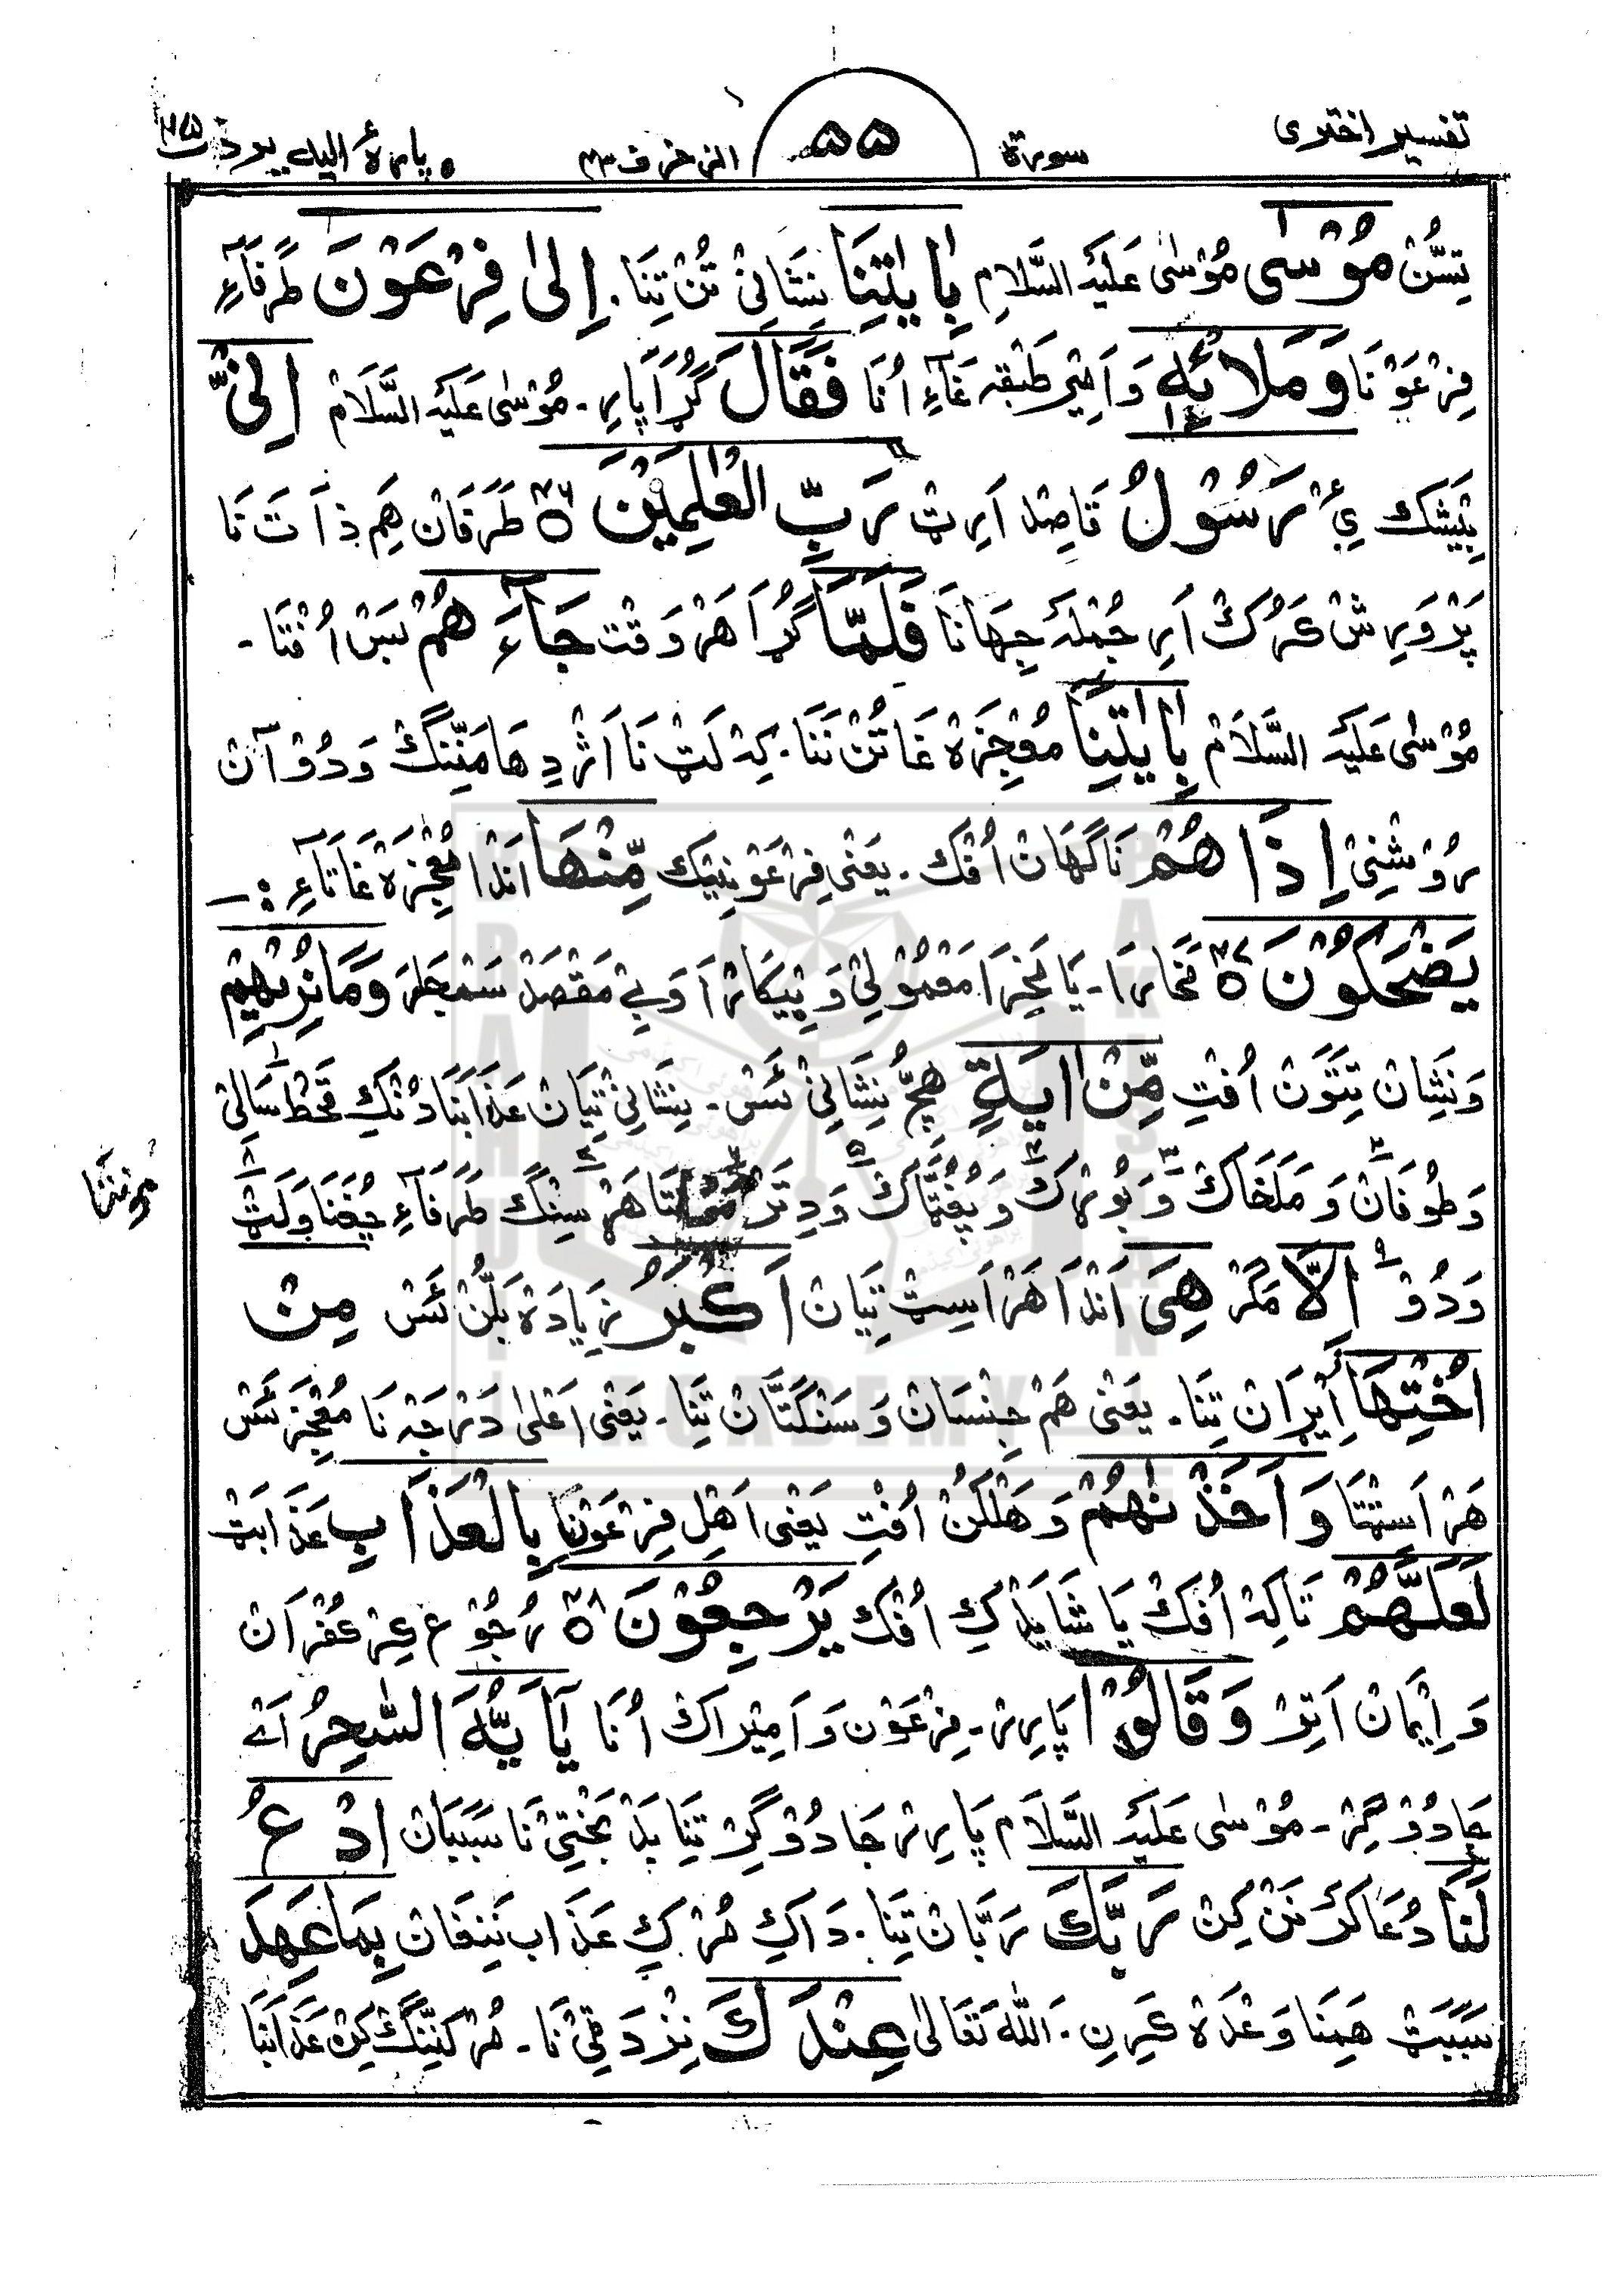 تفسیر اختری سورة ۵۵ الزخرف ۴۳ پارهٔ الیه یرد ۲۵
تِسُّنْ مُوْسٰى مُوْسٰى عَلَيْهِ السَّلَامِ بِاٰيٰتِنَا نِشَانِیْ تُنْ تِنَا. اِلىٰ فِرْعَوْنَ طَرَفَآءِ
فِرْعَوْنَا وَمَلَا۟ئِهٖ وَ اَمِیْر طَبْقَہ غَآءِ اُنَا فَقَالَ گُڑَا پَارِ۔ مُوْسٰى عَلَيْهِ السَّلَامْ اِنِّیْ
بِیْشَک ئِیْ رَسُوْلُ قَاصِدْ اَرِٹْ رَبِّ الْعٰلَمِيْنَ ۴۶ طَرَفَانْ هَمْ ذَاتَ نَا
پَرْوَرِشْ کَرُکْ اَرِ جُمْلَہ جِهَانَا فَلَمَّا گُڑَا هَرْوَقْت جَآءَ هُمْ بَسْ اُفْتَا۔
مُوْسٰى عَلَيْهِ السَّلَامْ بِاٰيٰتِنَا مُعْجِزَہ غَاتُنْ تَنَا۔ کِہ لَٹْ نَا اَژْدِهَا مَنِّنْگْ وَ دُوْآنْ
رُوْشِنِیْ اِذَا هُمْ نَاگَهَانْ اُفْکْ۔ یَعْنِی فِرْعَوْنِیْکْ مِّنْهَا اَنْدَا مُعْجِزَہ غَاتَآءِ
يَضْحَكُوْنَ ۴۷ مَخَارَا۔ یَا مَخِرَا مَعْمُوْلِیْ وَ بِیْکَارَا وَ بِے مَقْصَدْ سَمْجَارَ وَمَا نُرِيْهِمْ
وَ نَشَانْ تِتَوَنْ اُفْتِ مِّنْ اٰيَةٍ هِچُّ نِشَانِیْ ئَسْ۔ نِشَانِیْ تِیَانْ عَذَابَنَا دُنْکِ قَحْطْ سَالِیْ
وَ طُوْفَانْ وَ مَلَخَاکْ وَ بُوْرَکْ وَ پُغُّٹَّاکْ وَ دِتَرْ هَرْسِنْگْ طَرَفَآءِ وَلَٹْ
وَ دُوْ اِلَّا مَگَرْ هِیَ اَنْدَا هَرْاَسِٹْ تِیَانْ اَكْبَرُ زِیَادَہ بَلُّنْ ئَسْ مِنْ
اُخْتِهَا اِیْڑَانْ تِنَا۔ یَعْنِی هَمْ جِنْسَانْ وَ سَنْگَتَّانْ تِنَا۔ یَعْنِی اَعْلىٰ دَرْجَہ نَا مُعْجِزَئَسْ
هَرْاَسِٹْتَا وَ اَخَذْنٰهُمْ وَ هَلْکُنْ اُفْتِ یَعْنِی اَهْلِ فِرْعَوْنَا بِالْعَذَابِ عَذَابَٹْ
لَعَلَّهُمْ تَاکِہ اُفَکْ یَا شَایَدْ کِ اُفْکْ يَرْجِعُوْنَ ۴۸ رُجُوْعِ کِرْ کُفْرَانْ
وَ اِیْمَانْ اَتِرْ وَقَالُوْا پَارِرْ۔ فِرْعَوْن وَ اَمِیْرَاکْ اُنَا يٰٓاَيُّهَ السّٰحِرُ اَے
جَادُوْگَرْ۔ مُوْسٰى عَلَيْهِ السَّلَامِ پَارِرْ جَادُوْگَرْ تِنَا بَدْ بَخْتِیْ نَا سَبَبَانْ ادْعُ
لَنَا دُعَا کَرْ نَنْ کِنْ رَبَّكَ رَبَّانْ تِنَا۔ دَاکِ مُرْکِ عَذَاب نَنِفَانْ بِمَا عَهِدَ
سَبَبَٹْ هَمِنَا وَعْدَہ کَرِنِ۔ اَللّٰهُ تَعَالیٰ عِنْدَكَ نِزْدِ قِیْ نَا۔ مُرْ کَنِنْگْ کِرْ عَذَابَنَا